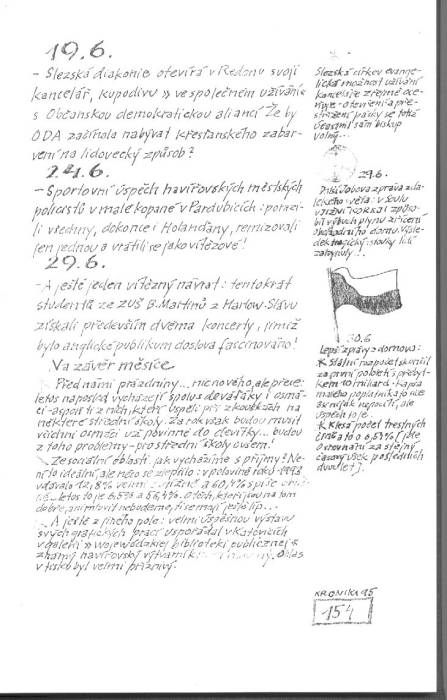 19.6.
- Slezská diakonie otevírá v Redonu svoji
kancelář, kupodivu » ve společném užívání «
s Občanskou demokratickou aliancí. Že by
ODA začínala nabývat křesťanského zabar-
vení na lidovecký způsob?
24.6.
- Sportovní úspěch havířovských městských
policistů v malé kopané v Pardubicích: porazi-
li všechny, dokonce i Holanďany, remizovali
jen jednou a vrátili se jako vítězové!
29.6.
- A ještě jeden vítězný návrat: tentokrát
studentů ze ZUŠ B. Martinů z Harlow. Slávu
získali především dvěma koncerty, jimiž
bylo anglické publikum doslova fascinováno!
Na závěr měsíce
Před námi prázdniny... nic nového, ale přece:
letos naposled vycházejí spolu s deváťáky i osmá-
ci - aspoň ti z nich, kteří uspěli při zkouškách na
některé střední školy. Za rok však budou muset
všichni osmáci už povinně do devítky... budou
z toho problémy - prostřední školy ovšem!
Ze sociální oblasti: jak vycházíme s příjmy? Ne-
ní to ideální, ale něco se zlepšilo: v polovině roku 1993
udávalo 12,8% velmi obtížně a 60,4% spíše obtí-
žně... letos to je 6,5% a 56,4%. O těch, kteří jsou na tom
dobře, ani mluvit nebudeme, ti se mají ještě líp...
A ještě z jiného pole: velmi úspěšnou výstavu
svých grafických prací uspořádal v Katovicích
v galerii » wojewódzkiej biblioteki publicznej «
známý havířovský výtvarník Ohlas
v tisku byl velmi příznivý.
Slezská církev evange-
lická možnost užívání
kanceláře zřejmě oce-
ňuje - otevření a pře-
střižení pásky se totiž
účastnil sám biskup
Volný...
29.6.
Děsí Jobova zpráva z da-
lekého světa: v Soulu
v Jižní Koreji způso-
bil výbuch plynu zřícení
obchodního domu. Výsle-
dek tragický: stovky lidí
zahynuly!
30.6
Lepší zprávy z domova:
* Státní rozpočet skončil
za první pololetí s přebyt-
kem 10 miliard - kapsa
malého poplatníka to sice
nepocítí, ale
úspěch to je.
* Klesl počet trestných
činů a to o 6,5% [jde
o srovnání za stejný
časový úsek posledních
dvou let].
KRONIKA 95
154